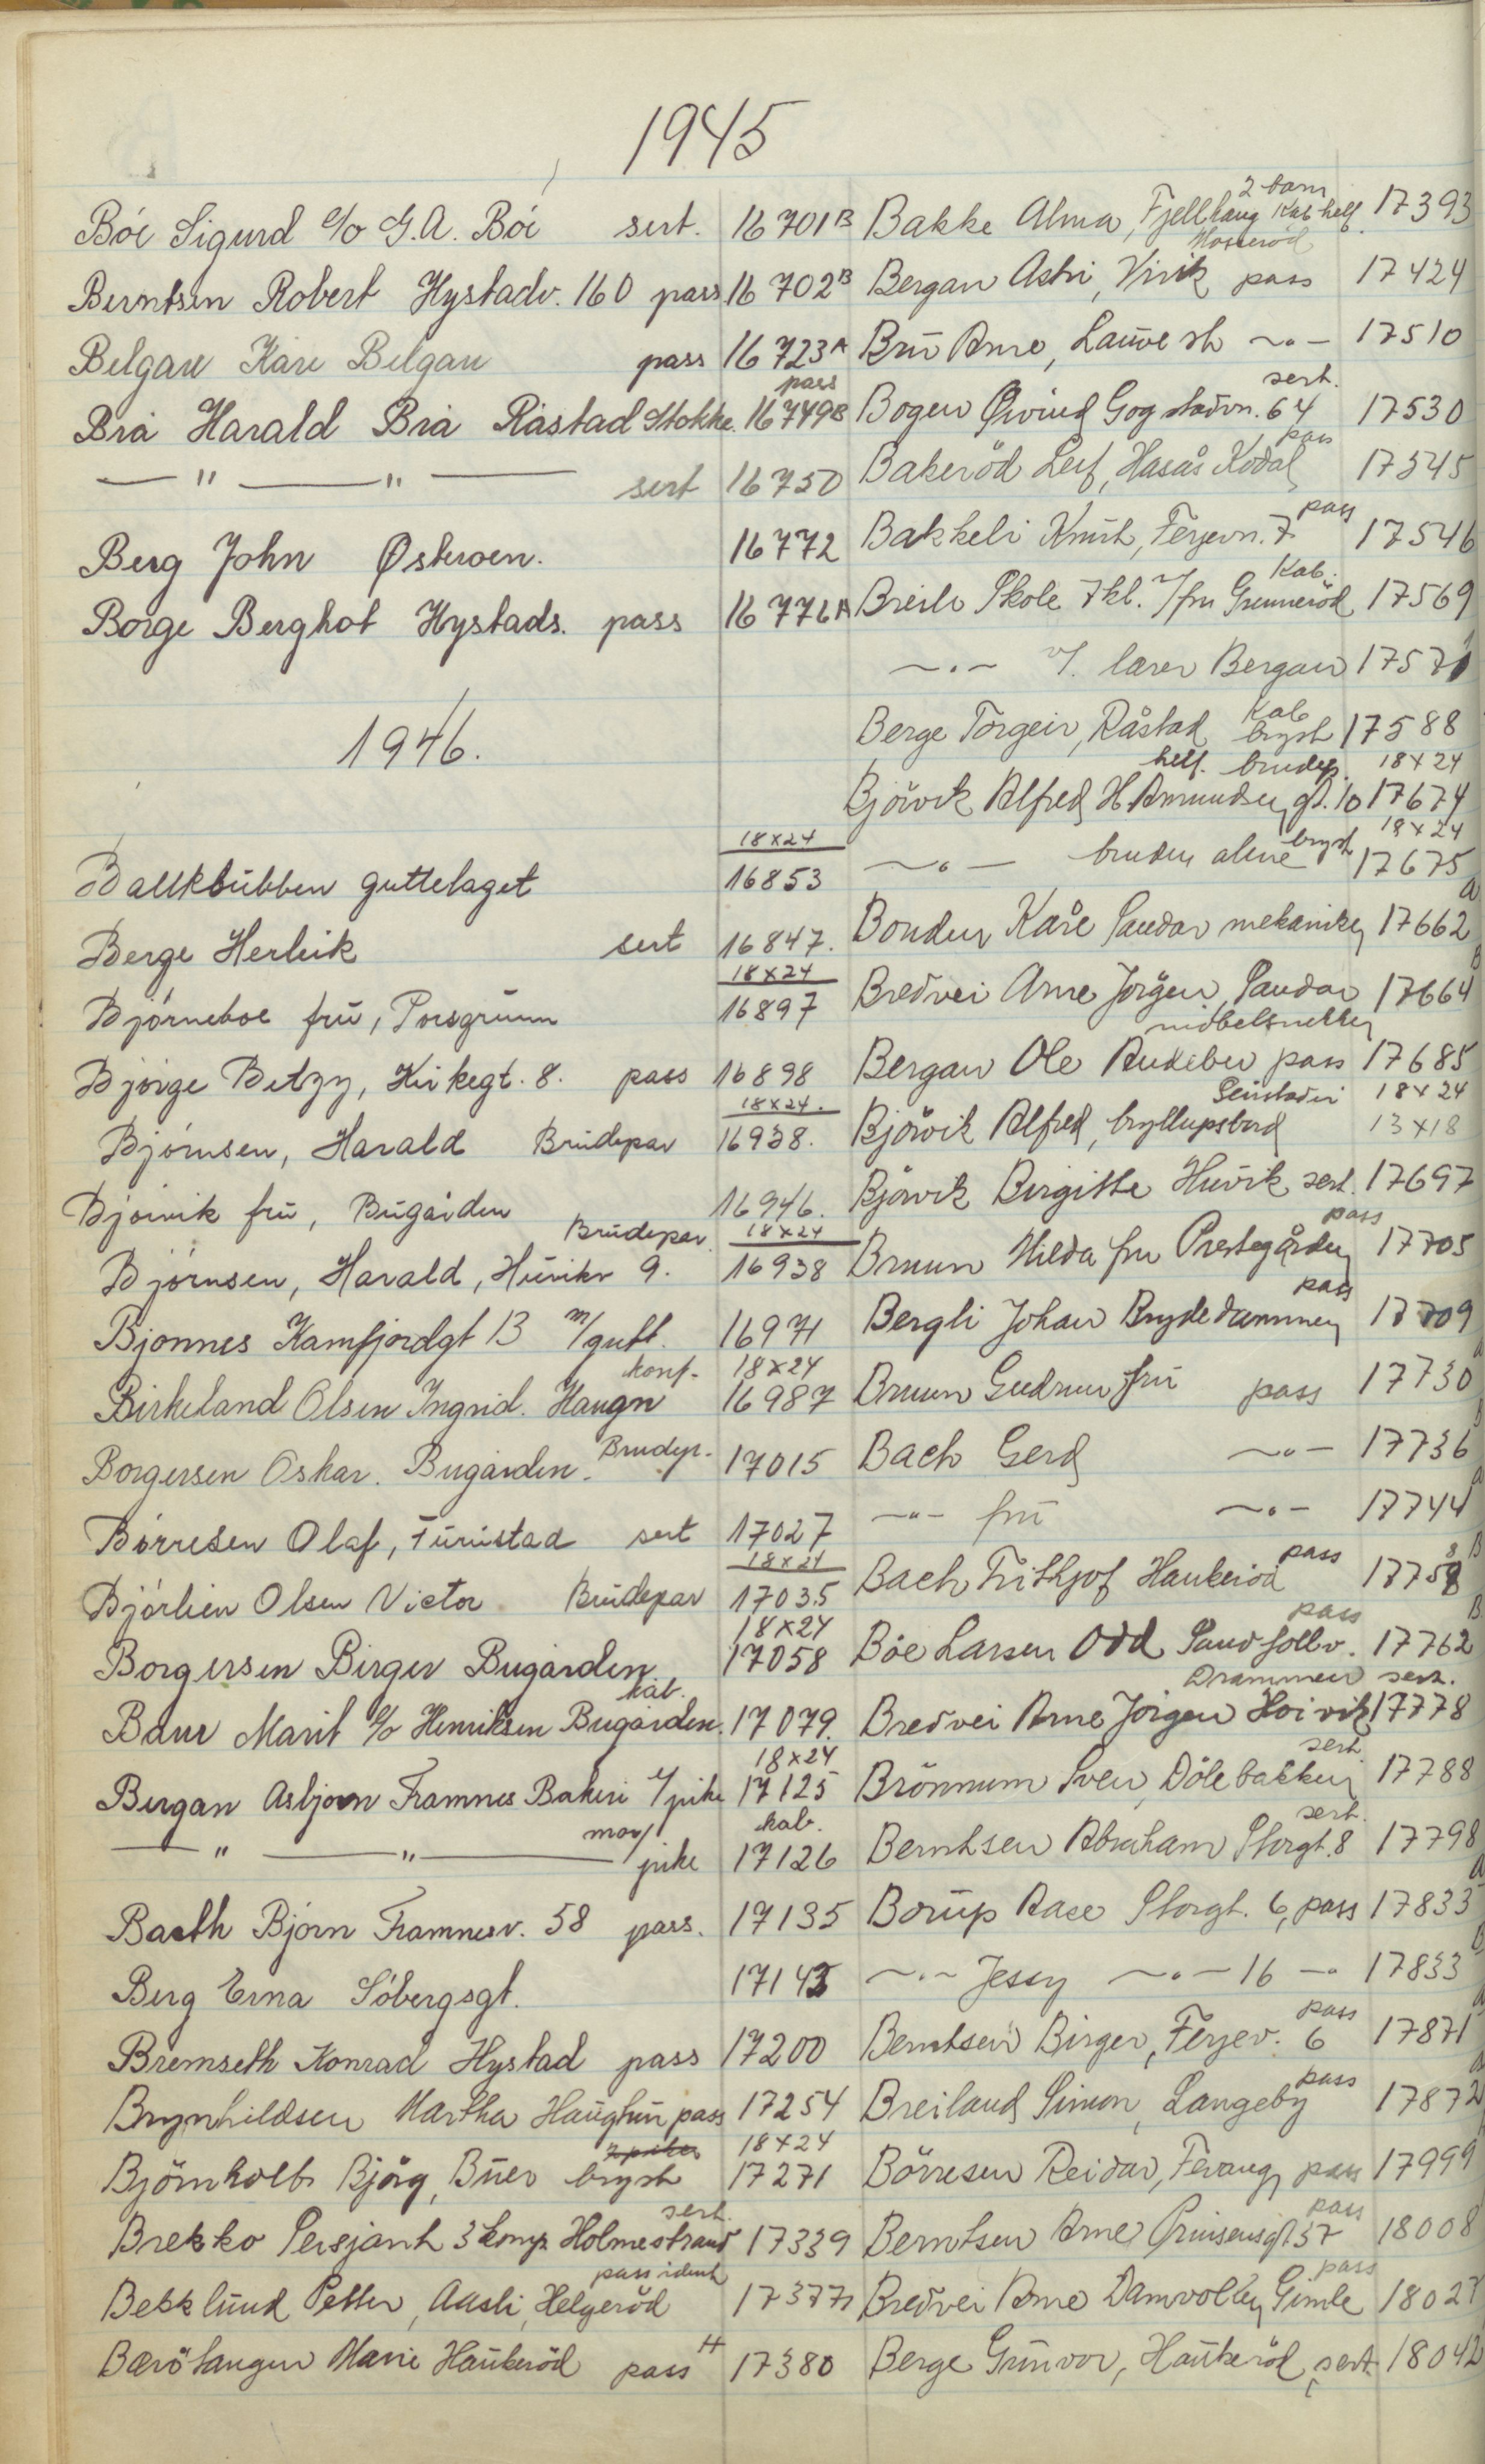 1945
Bøe Sigurd c/o G.A. Bøe sert. 16701 B
Berntsen Robert Hystadv. 160 pass 16702 B
Belgau Kåre Belgau pass 16723 A
Brå Harald Brå Råstad Stokke. pass 16749 B
— " — " — sert 16750
Berg John Østeroen. 16772
Borge Berghot Hystads. pass 16776 A
1946.
Ballklubben guttelaget 18x24 16853
Berge Herleik sert 16847.
Bjørneboe frü, Porsgrunn 18x24 16897
Bjørge Betzy, Kirkegt. 8. pass 16898
Bjørnsen, Harald Brudepar 18x24. 16938.
Bjørvik frü, Bugården 16946.
Bjørnsen, Harald, Hüvikv 9. Brudepar. 18x24 16938
Bjønnes Kamfjordgt 13 m/gutt. 16971
Birkeland Olsen Ingrid. Haugn konf. 18x24 16987
Borgersen Oskar. Bugården. Brudep. 17015
Børresen Olaf, Furustad sert 17027
Bjørlien Olsen Victor Brudepar 18x24 17035
Borgersen Birger Bugården. 18x24 17058
Baur Marit c/o Henriksen Bugården. kab. 17079.
Bergan Asbjørn Framnes Bakeri 1/pike 18x24 17125
— " — " — mor/pike kab. 17126
Barth Bjørn Framnesv. 58 pass. 17135
Berg Erna Søbergsgt. 17143
Bremseth Konrad Hystad pass 17200
Brynhildsen Martha Haughün pass 17254
Bjørnholt Bjørg, Büer bryst 18x24 17271
Brekko Sersjant 3 komp. Holmestrand sert. 17339
Bekklünd Petter, Aasli, Helgerød pass ident 17377
Bærøtangen Marie Haükerød pass 17380
Bakke Alma, Fjellhaug 2 barn Kab helf. Mosserød 17393
Bergan Astri, Virik pass 17424
Brü Arne, Lauve st ~"— 17510
Bogen Øivind Gogstadvn. 64 sert. 17530
Bakerød Leif, Hasås Kodal pass 17545
Bakkeli Knüt, Ferjevn. 7 pass 17546
Breili Skole 7 kl. v/frü Grennerød Kab. 17569
~"~ v/. lærer Bergan 17571
Berge Torgeir, Råstad Kab bryst 17588
Bjørvik Alfred H. Amundsen gt. 10 helf. brudep. 18x24 17674
~"— bruden alene bryst 18x24 17675
Bonden Kåre Sandar mekaniker 17662 a
Bredvei Arne Jörgen, Sandar 17664 B
møbelsnekker
Bergan Ole Rudebu pass 17685
Bjørvik Alfred, bryllupsbord 18x24 13x18
Bjørvik Birgitte Hüvik sert. 17697
Bruun Hilda frü Prestegården pass 17705
Bergli Johan Brydedammen pass 17709
Bruun Gudrun frü pass 17730 a
Bach Gerd ~"— 17736 B
~"— frü ~"— 17744 a
Bach Frithjof Haukerød pass 17758 B
Bøe Larsen Odd Sandfollv. pass 17762 B
Bredvei Arne Jörgen Hoivik Drammen sert. 17778
Brønnum Sven, Dölebakken sert. 17788
Berntsen Abraham Storgt. 8 sert. 17798
Borüp Aase Storgt. 6, pass 17833 a
~"~ Jessy ~"— 16 —" 17833 B
Berntsen Birger, Ferjev. 6 pass 17871 a
Breiland Simon, Langeby pass 17872 a
Börresen Reidar, Fevang pass 17999
Berntsen Arne Prinsensgt 37 pass 18008
Bredvei Arne Damvollen Gimle pass 18027
Berge Günvor, Haükerød, sert 18042